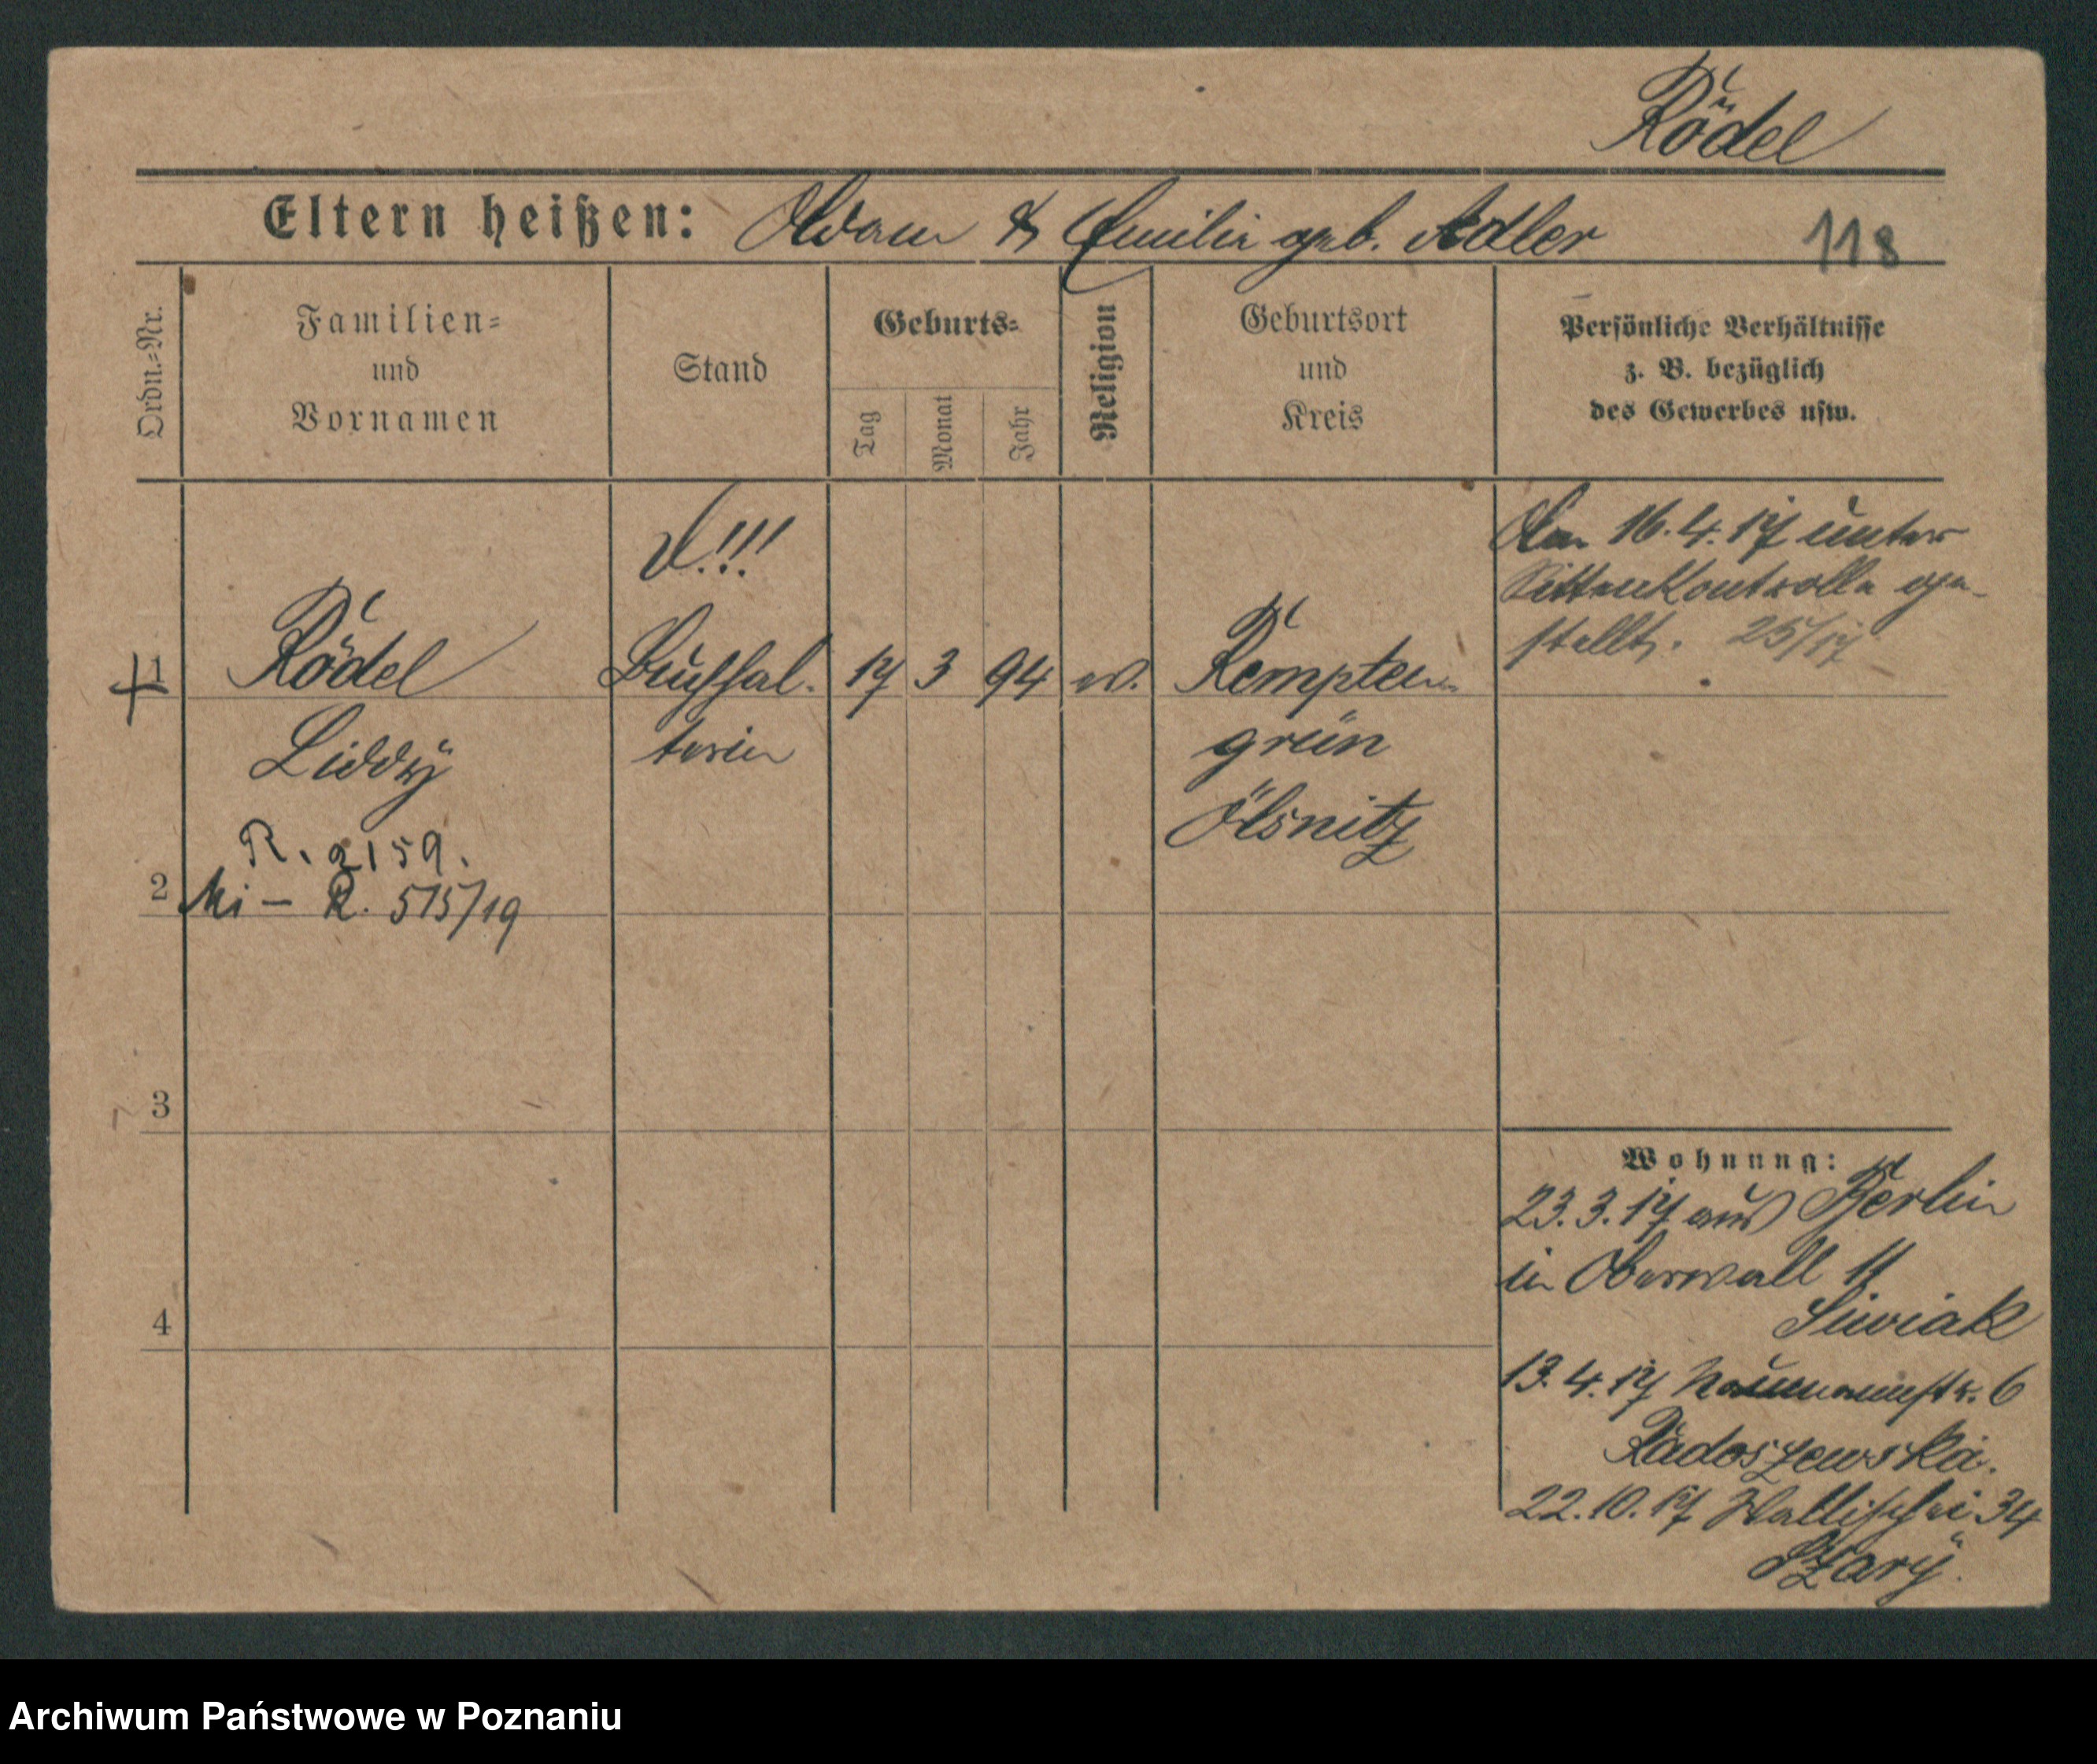 Rödel
Eltern heißen: Adam & Emilie geb. Adler
118
Ordn.=Nr.
Familien=
und
Vornamen
Stand
Geburts=
Tag
Monat
Jahr
Religion
Geburtsort
und
Kreis
Persönliche Verhältnisse
z. B. bezüglich
des Gewerbes usw.
1
Rödel
Liddy
R. 2159.
2
Ki – R. 515/19
!!!
Buchhal.
terin
17 3 94 ev.
Kempten
grün
Ölsnitz
Am 16.4.17 unter
Sittenkontrolle ge-
stellt. 25/17
3
4
Wohnung:
23.3.17 aus Berlin
in Oberwall 11
Siwiak
13.4.17 Naumannstr. 6
Radoszewska.
22.10.17 Wallischei 34
Szary.
Archiwum Państwowe w Poznaniu